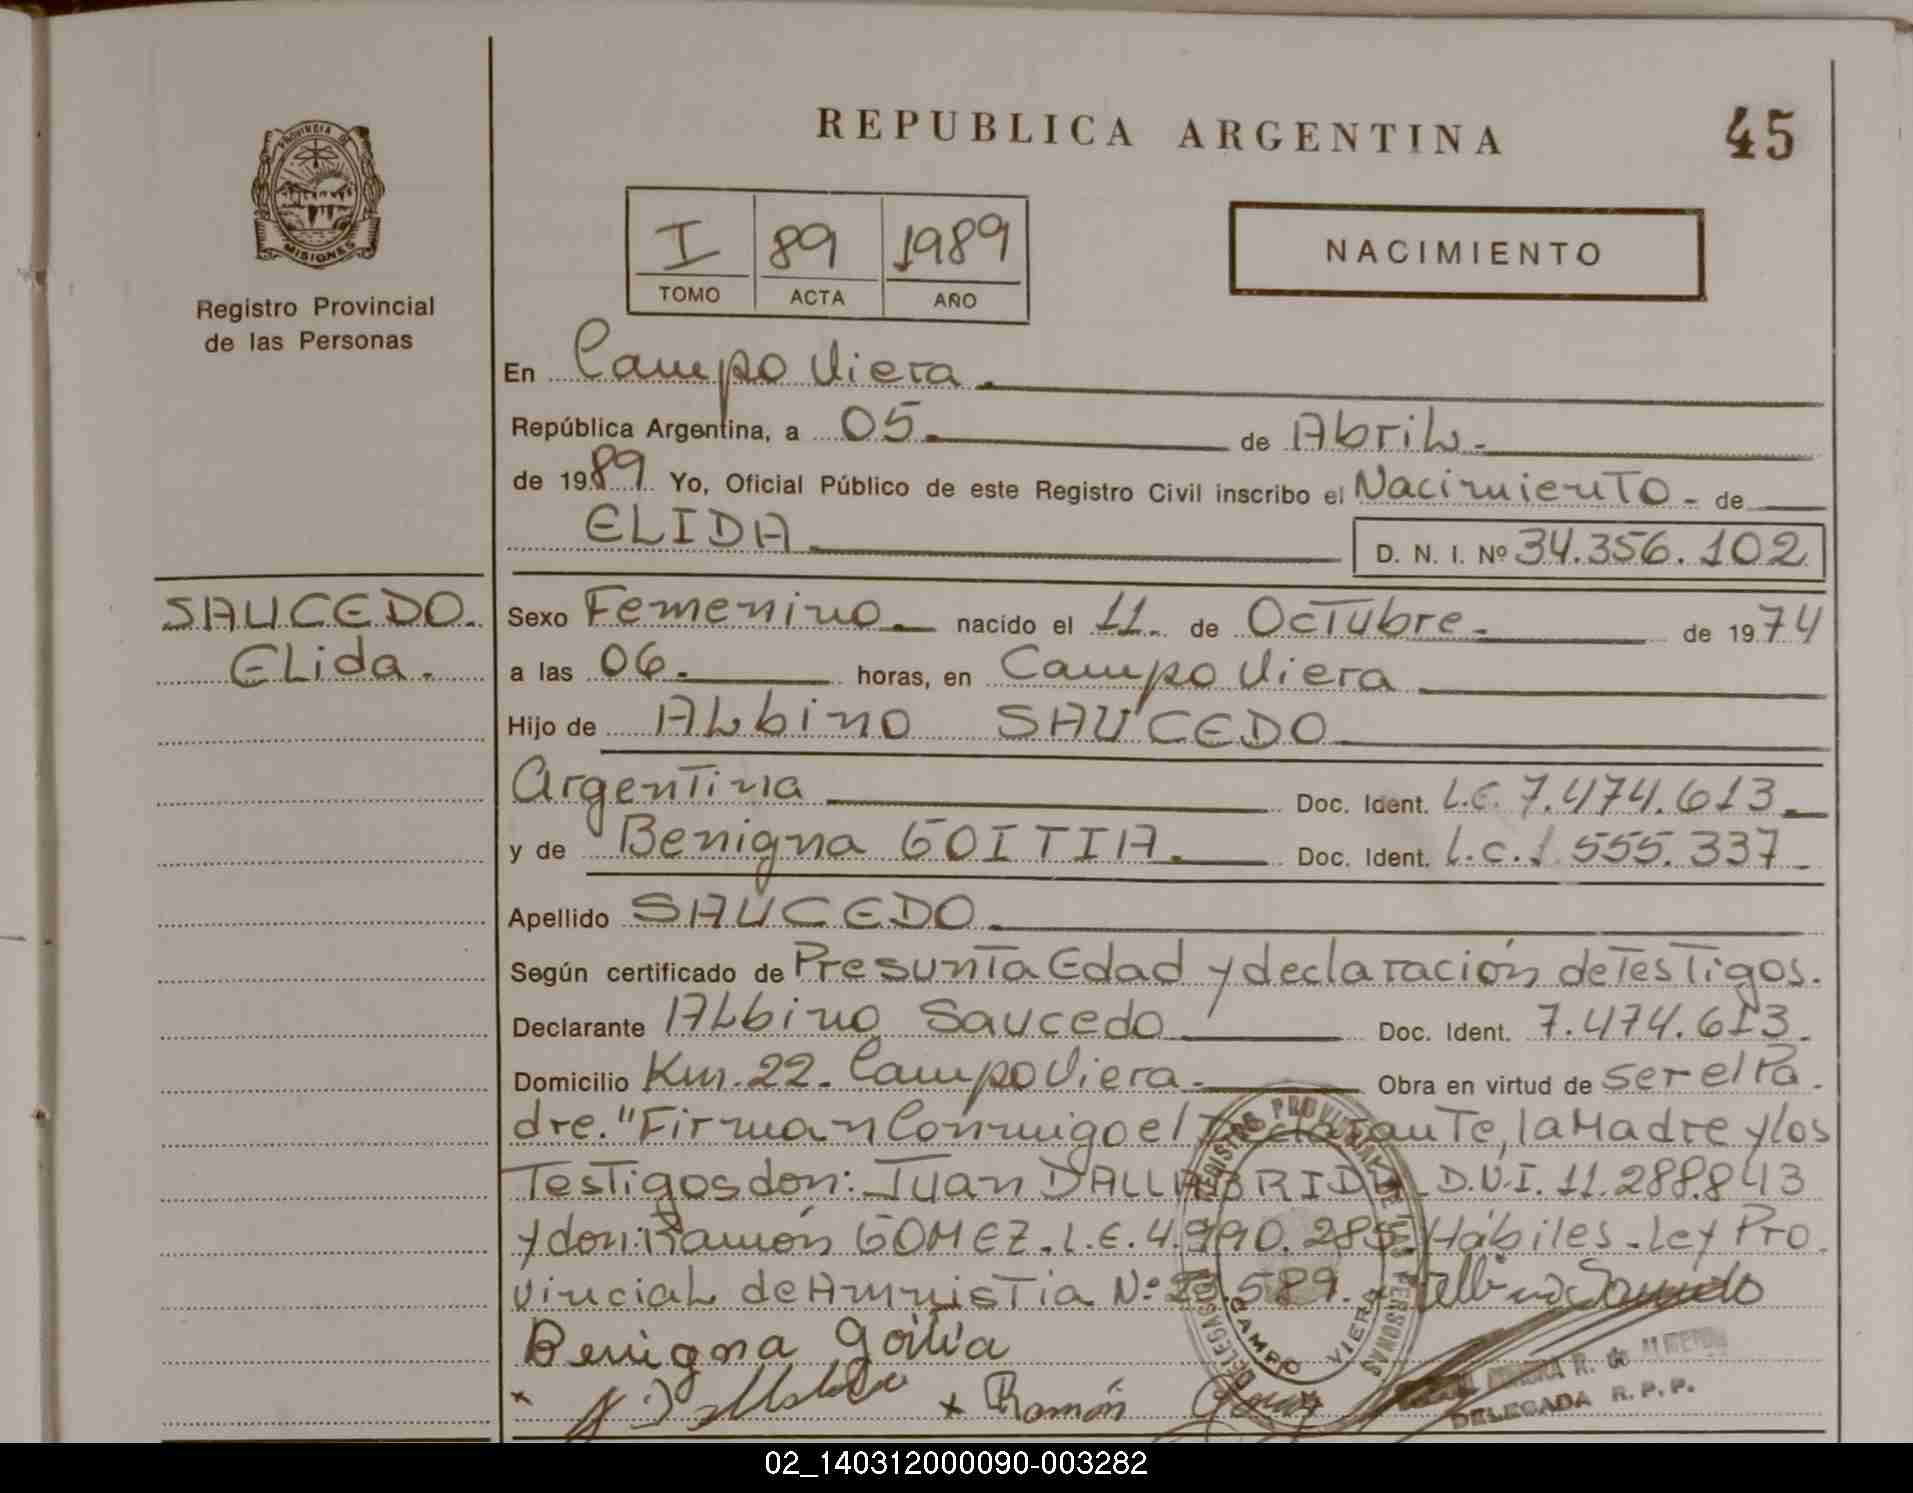 REPUBLICA ARGENTINA
45
PROVINCIA DE
MISIONES
Registro Provincial
de las Personas
I 89 1989
TOMO ACTA AÑO
NACIMIENTO
En Campo Viera.
República Argentina, a 05. de Abril.
de 1989 Yo, Oficial Público de este Registro Civil inscribo el Nacimiento - de
ELIDA D. N. I. Nº 34.356.102
SAUCEDO.
Elida.
Sexo Femenino. nacido el 11. de Octubre. de 1974
a las 06. horas, en Campo Viera
Hijo de Albino SAUCEDO
Argentina Doc. Ident. L.E. 7.474.613.
y de Benigna GOITIA. Doc. Ident. L.C. 1.555.337
Apellido SAUCEDO.
Según certificado de Presunta Edad y declaración de Testigos.
Declarante Albino Saucedo Doc. Ident. 7.474.613.
Domicilio Km. 22. Campo Viera. Obra en virtud de ser el Pa
dre. "Firman Conmigo el Declarante, la Madre y los
Testigos don: Juan DALLABRIDA D.N.I. 11.288.843
y don: Ramón GOMEZ. L.E. 4.990.285. Hábiles. Ley Pro
vincial de Amnistia Nº 589. Albino Saucedo
Benigna Goitia
x x Ramón Gomez
REGISTRO PROVINCIAL DE LAS PERSONAS
DELEGACION
CAMPO VIERA
R. de ALMEIDA
DELEGADA R. P. P.
02_140312000090-003282